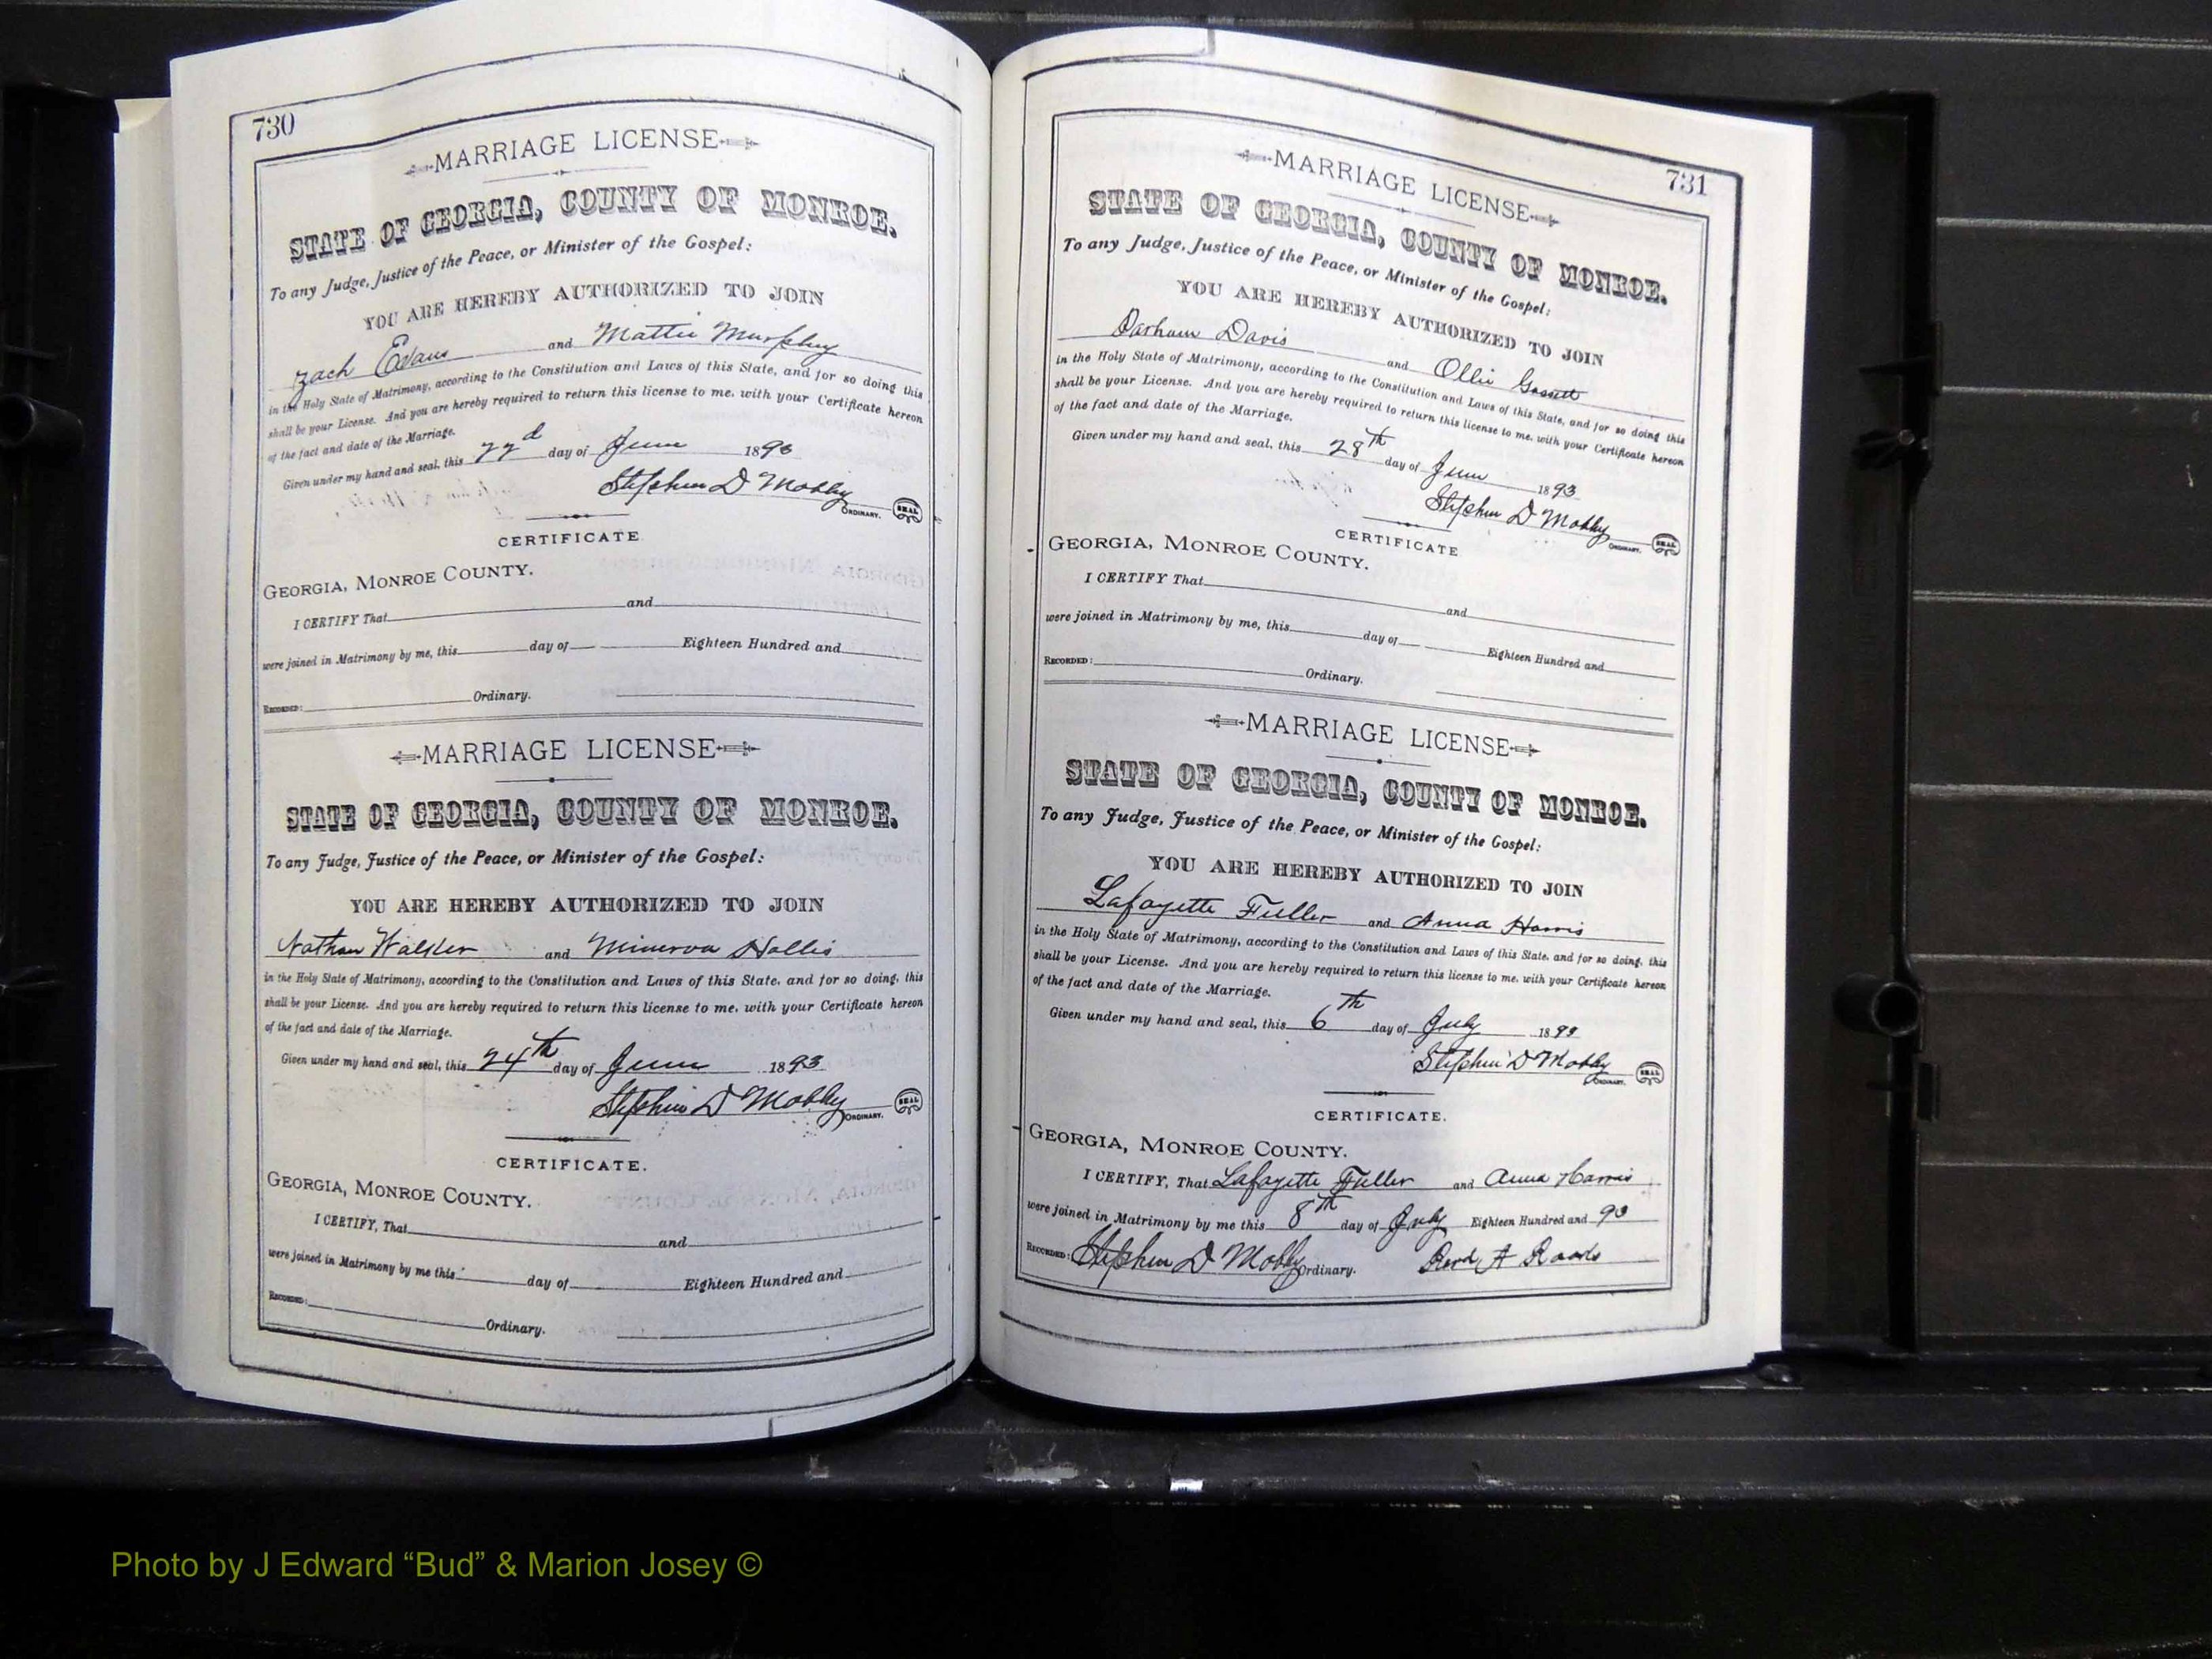 730
MARRIAGE LICENSE
STATE OF GEORGIA, COUNTY OF MONROE.
To any Judge, Justice of the Peace, or Minister of the Gospel:
YOU ARE HEREBY AUTHORIZED TO JOIN
Zach Evans and Mattie Murphey
in the Holy State of Matrimony, according to the Constitution and Laws of this State, and for so doing this
shall be your License. And you are hereby required to return this license to me, with your Certificate hereon
of the fact and date of the Marriage.
Given under my hand and seal, this 22d day of June 1893
Stephen D Mobley ORDINARY. SEAL
CERTIFICATE
GEORGIA, MONROE COUNTY.
I CERTIFY That and
were joined in Matrimony by me, this day of Eighteen Hundred and
RECORDED: Ordinary.
MARRIAGE LICENSE
STATE OF GEORGIA, COUNTY OF MONROE.
To any Judge, Justice of the Peace, or Minister of the Gospel:
YOU ARE HEREBY AUTHORIZED TO JOIN
Nathan Walker and Minerva Hollis
in the Holy State of Matrimony, according to the Constitution and Laws of this State, and for so doing, this
shall be your License. And you are hereby required to return this license to me, with your Certificate hereon
of the fact and date of the Marriage.
Given under my hand and seal, this 24th day of June 1893
Stephen D Mobley ORDINARY. SEAL
CERTIFICATE.
GEORGIA, MONROE COUNTY.
I CERTIFY, That and
were joined in Matrimony by me this day of Eighteen Hundred and
RECORDED: Ordinary.
731
MARRIAGE LICENSE
STATE OF GEORGIA, COUNTY OF MONROE.
To any Judge, Justice of the Peace, or Minister of the Gospel:
YOU ARE HEREBY AUTHORIZED TO JOIN
Parham Davis and Ollie
in the Holy State of Matrimony, according to the Constitution and Laws of this State, and for so doing this
shall be your License. And you are hereby required to return this license to me, with your Certificate hereon
of the fact and date of the Marriage.
Given under my hand and seal, this 28th day of June 1893
Stephen D Mobley ORDINARY. SEAL
CERTIFICATE
GEORGIA, MONROE COUNTY.
I CERTIFY That and
were joined in Matrimony by me, this day of Eighteen Hundred and
RECORDED: Ordinary.
MARRIAGE LICENSE
STATE OF GEORGIA, COUNTY OF MONROE.
To any Judge, Justice of the Peace, or Minister of the Gospel:
YOU ARE HEREBY AUTHORIZED TO JOIN
Lafayette Fuller and Anna Harris
in the Holy State of Matrimony, according to the Constitution and Laws of this State, and for so doing, this
shall be your License. And you are hereby required to return this license to me, with your Certificate hereon
of the fact and date of the Marriage.
Given under my hand and seal, this 6th day of July 1893
Stephen D Mobley ORDINARY. SEAL
CERTIFICATE.
GEORGIA, MONROE COUNTY.
I CERTIFY, That Lafayette Fuller and Anna Harris
were joined in Matrimony by me this 8th day of July Eighteen Hundred and 93
RECORDED: Stephen D Mobley Ordinary. A Roads
Photo by J Edward “Bud” & Marion Josey ©